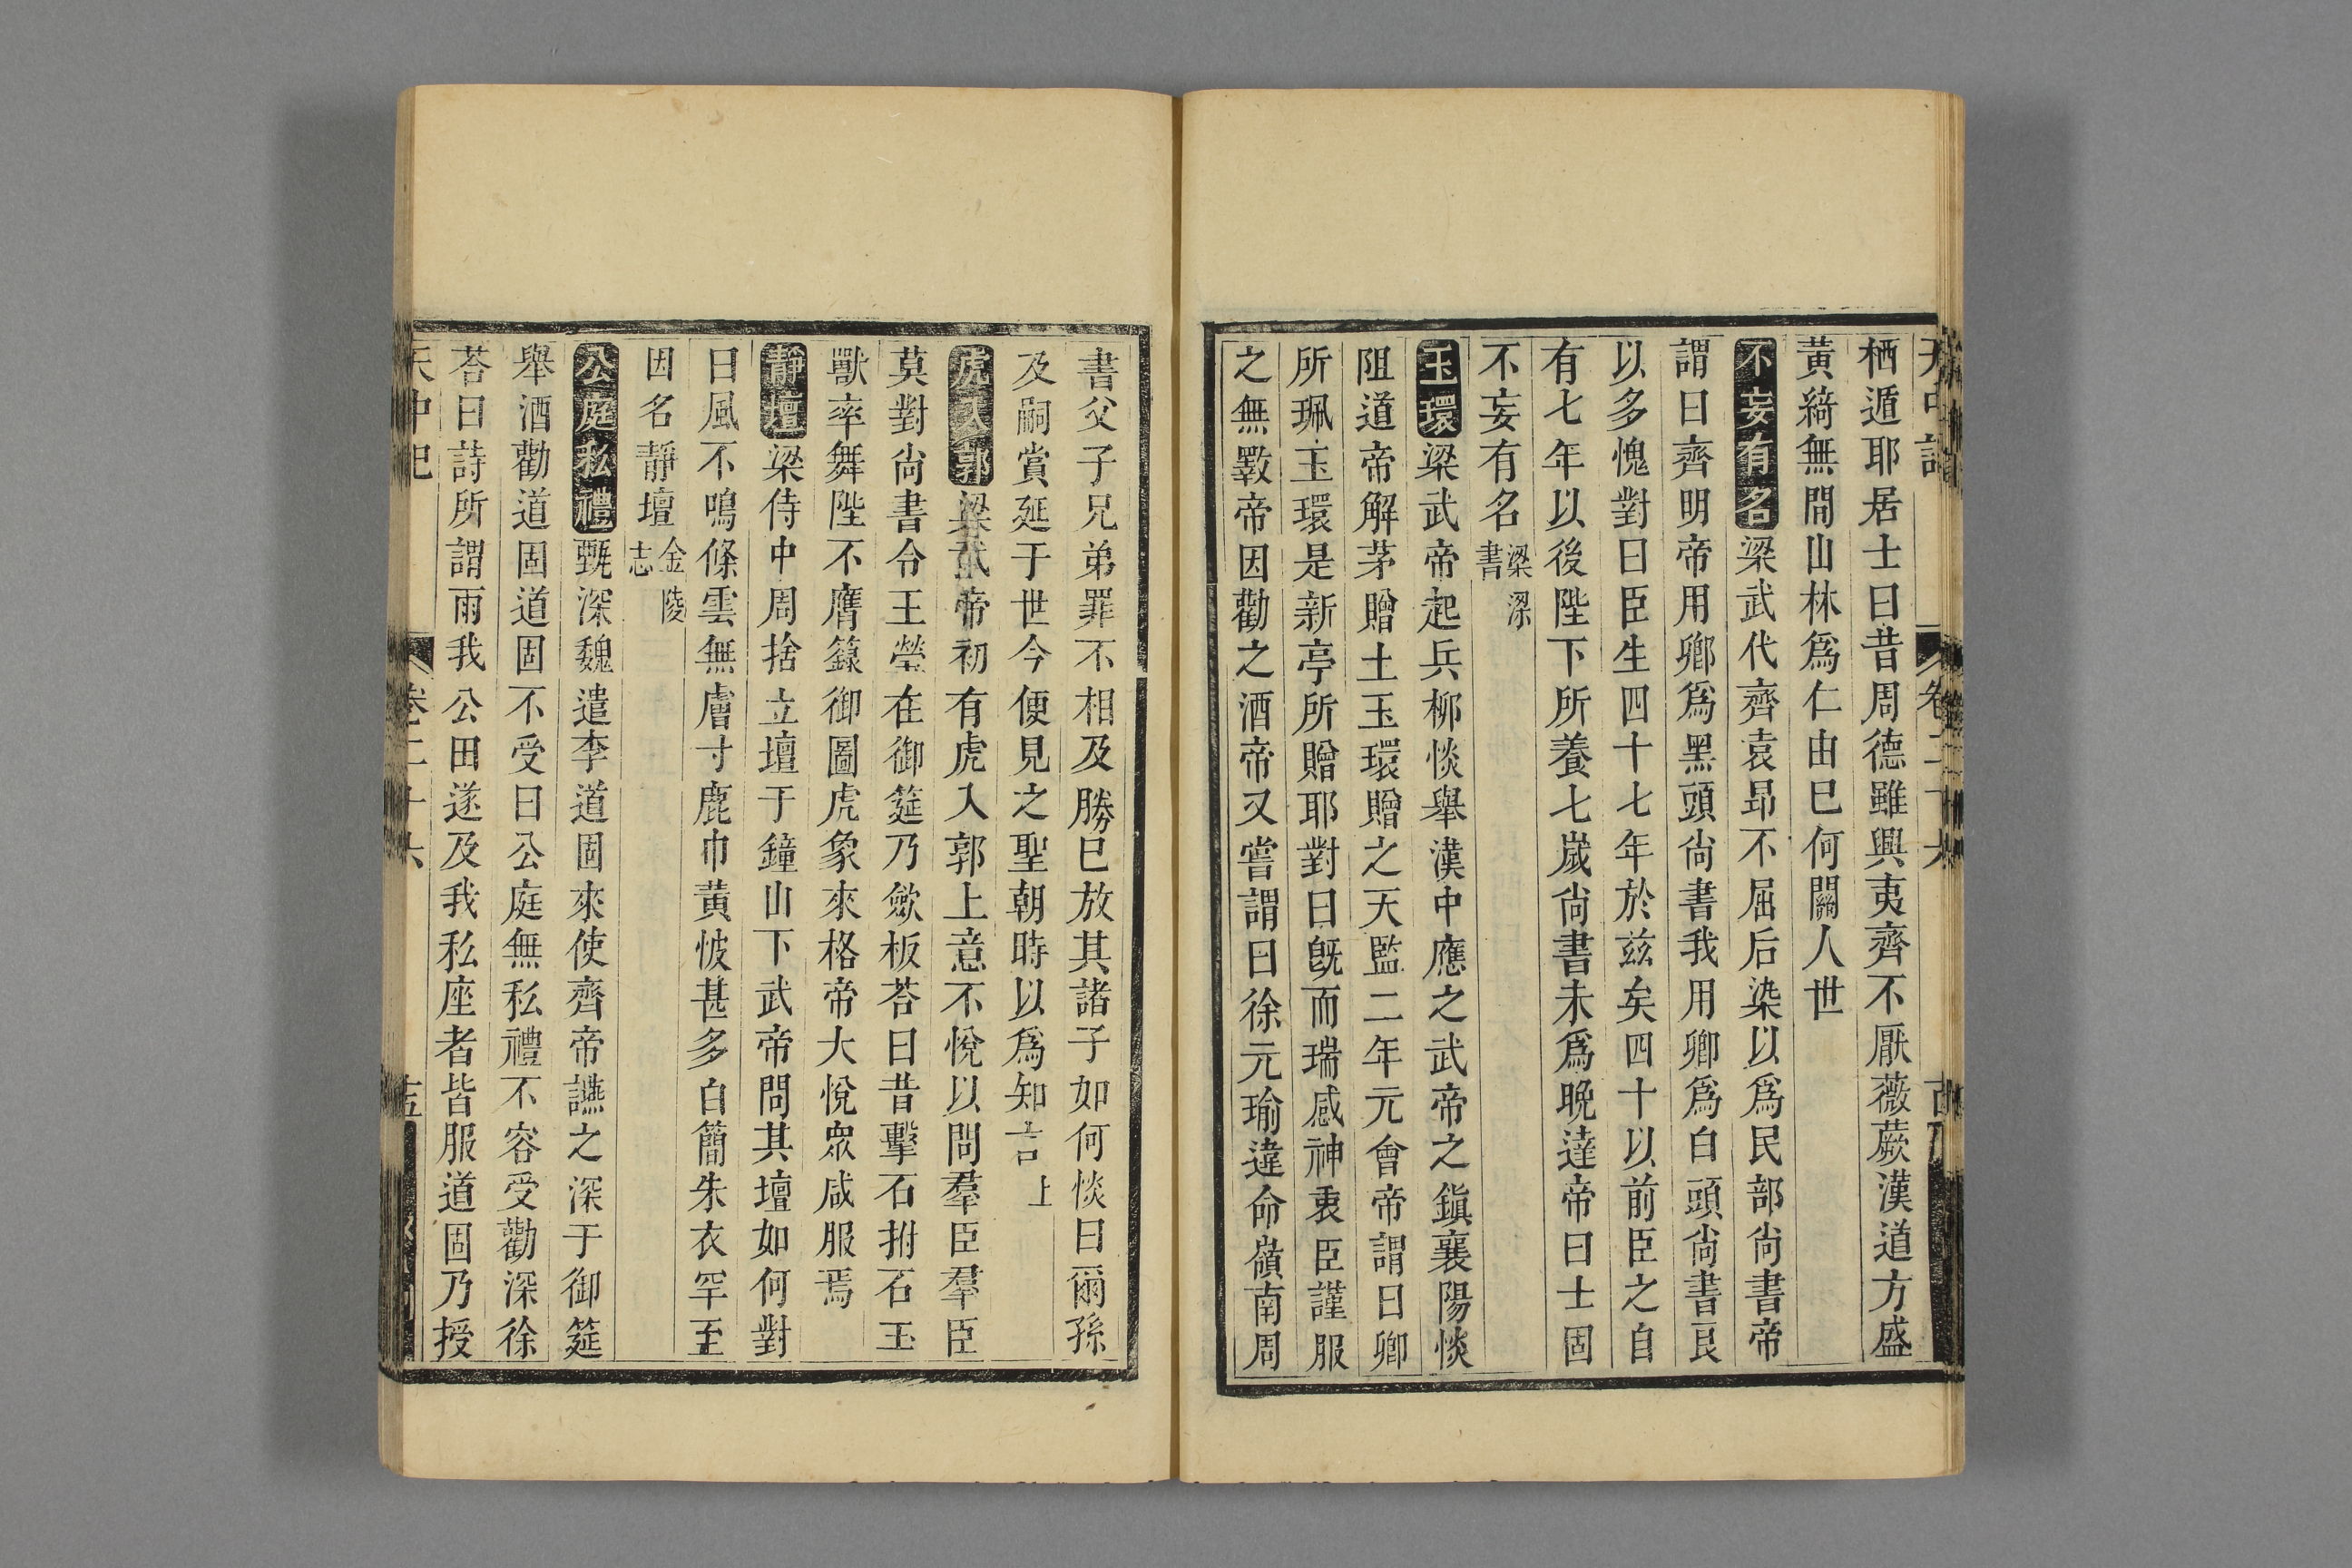 栖遁耶居士曰昔周德雖興夷齊不厭薇蕨漢道方盛
黃綺無間山林為仁由巳何關人世
不妄有名梁武代齊袁昂不屈后染以爲民部尚書帝
謂曰齊明帝用卿爲黑頭尚書我用卿爲白頭尚書良
以多愧對曰臣生四十七年於茲矣四十以前臣之自
有七年以後陛下所養七歲尚書未爲晚達帝曰士固
不妄有名梁梁書
玉環梁武帝起兵柳惔舉漢中應之武帝之鎭襄陽惔
阻道帝解茅贈土玉環贈之天監二年元會帝謂曰卿
所珮玉環是新亭所贈耶對曰旣而瑞感神衷臣謹服
之無斁帝因勸之酒帝又嘗謂曰徐元瑜違命嶺南周
書父子兄弟罪不相及朕巳放其諸子如何惔曰爾孫
及嗣賞延于世今便見之聖朝時以爲知言上
虎入郭梁武帝初有虎入郭上意不悅以問羣臣羣臣
莫對尚書令王瑩在御筵乃斂板荅曰昔擊石拊石玉
獸率舞陛不膺籙御圖虎象來格帝大悅眾咸服焉
靜壇梁侍中周捨立壇于鐘山下武帝問其壇如何對
曰風不鳴條雲無膚寸鹿巾黃帔甚多白簡朱衣罕至
因名靜壇金陵志
公庭私禮甄深魏遣李道固來使齊帝讌之深于御筵
舉酒勸道固道固不受曰公庭無私禮不容受勸深徐
荅曰詩所謂雨我公田遂及我私座者皆服道固乃授
天中記 卷二十六